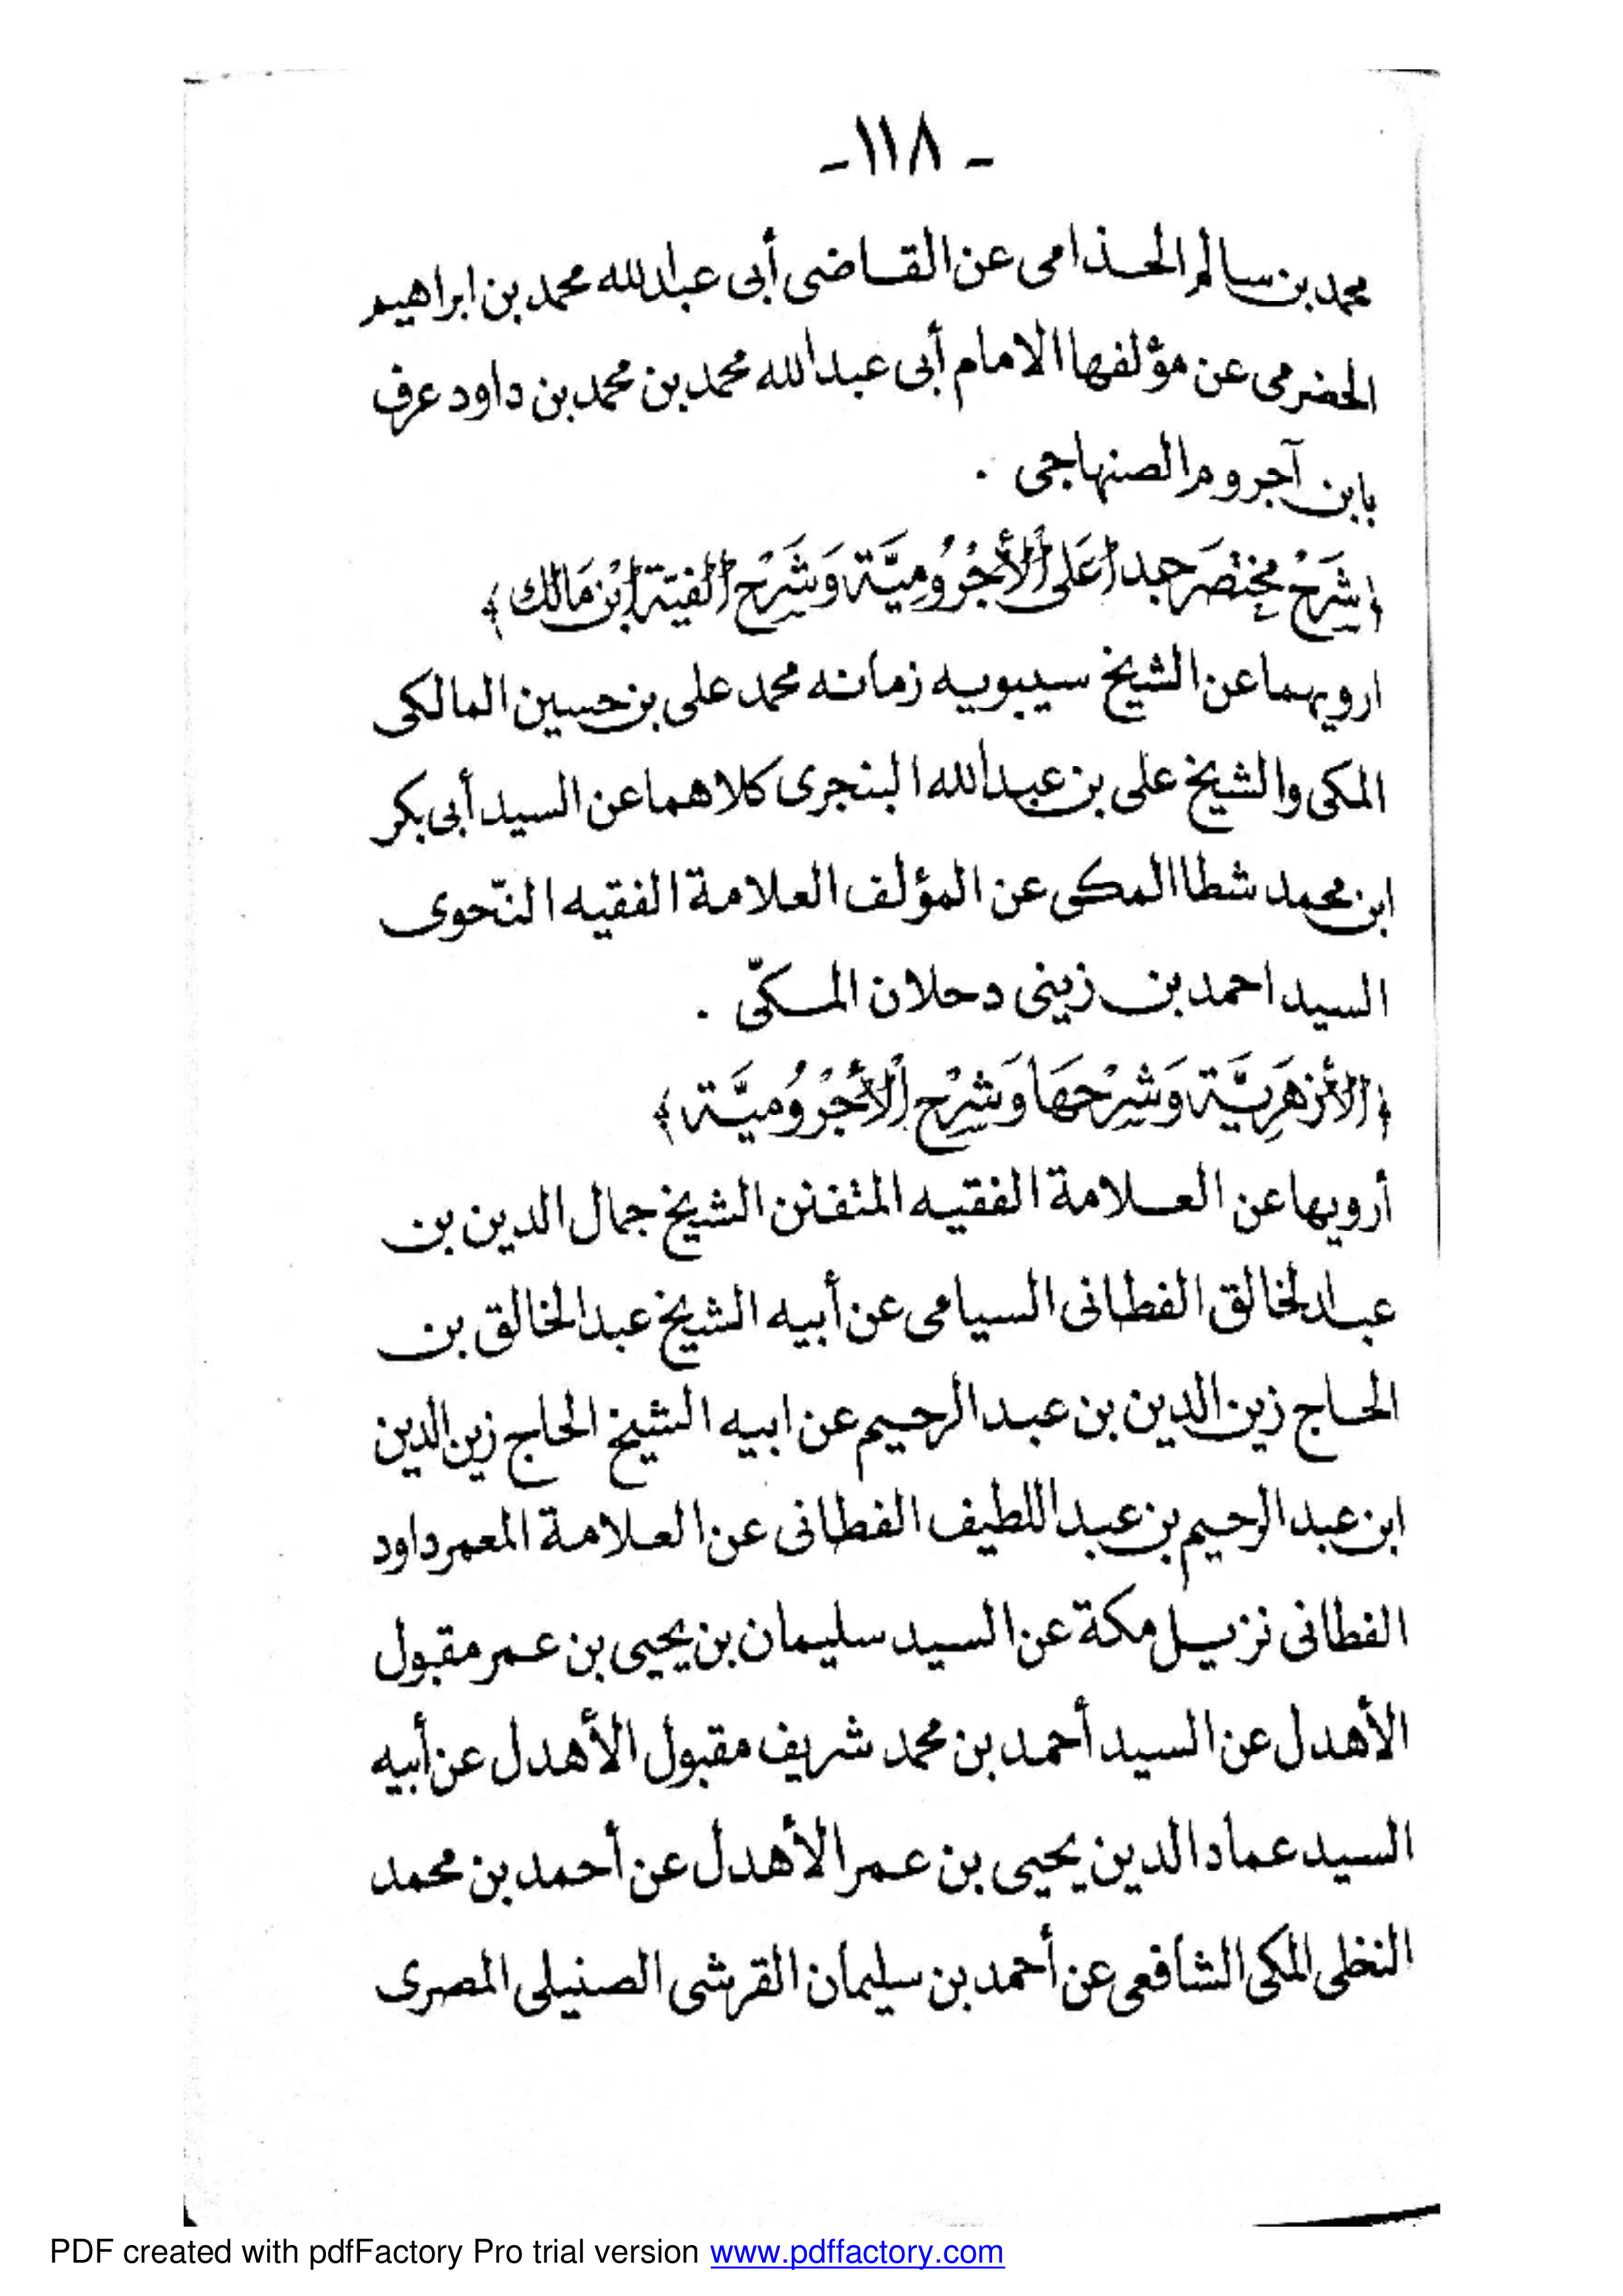 - ١١٨ -
محمد بن سالم الحذامى عن القاضى أبى عبدالله محمد بن ابراهيم
الحضرمى عن مؤلفها الامام أبى عبدالله محمد بن محمد بن داود عرف
بابن آجروم الصنهاجى .
﴿شَرْحُ مختصَر جدا عَلَى الأَجُرُومِيَّة وَشَرْح الفية ابْن مَالك﴾
ارويهما عن الشيخ سيبويه زمانه محمد على بن حسين المالكى
المكى والشيخ على بن عبدالله البنجرى كلاهما عن السيد أبى بكر
ابن محمد شطا المكى عن المؤلف العلامة الفقيه النّحوى
السيد احمد بن زينى دحلان المكّى .
﴿الأزهَرِيَّة وَشَرْحهَا وَشَرْح الأَجُرُوُميَّة﴾
أرويها عن العلامة الفقيه المتفنن الشيخ جمال الدين بن
عبدالخالق الفطانى السيامى عن أبيه الشيخ عبدالخالق بن
الحاج زين الدين بن عبدالرحيم عن ابيه الشيخ الحاج زين الدين
ابن عبدالرحيم بن عبداللطيف الفطانى عن العلامة المعمر داود
الفطانى نزيل مكة عن السيد سليمان بن يحيى بن عمر مقبول
الأهدل عن السيد أحمد بن محمد شريف مقبول الأهدل عن أبيه
السيد عماد الدين يحيى بن عمر الأهدل عن أحمد بن محمد
النخلى المكى الشافعى عن أحمد بن سليمان القرشى الصنيلى المصرى
PDF created with pdfFactory Pro trial version www.pdffactory.com